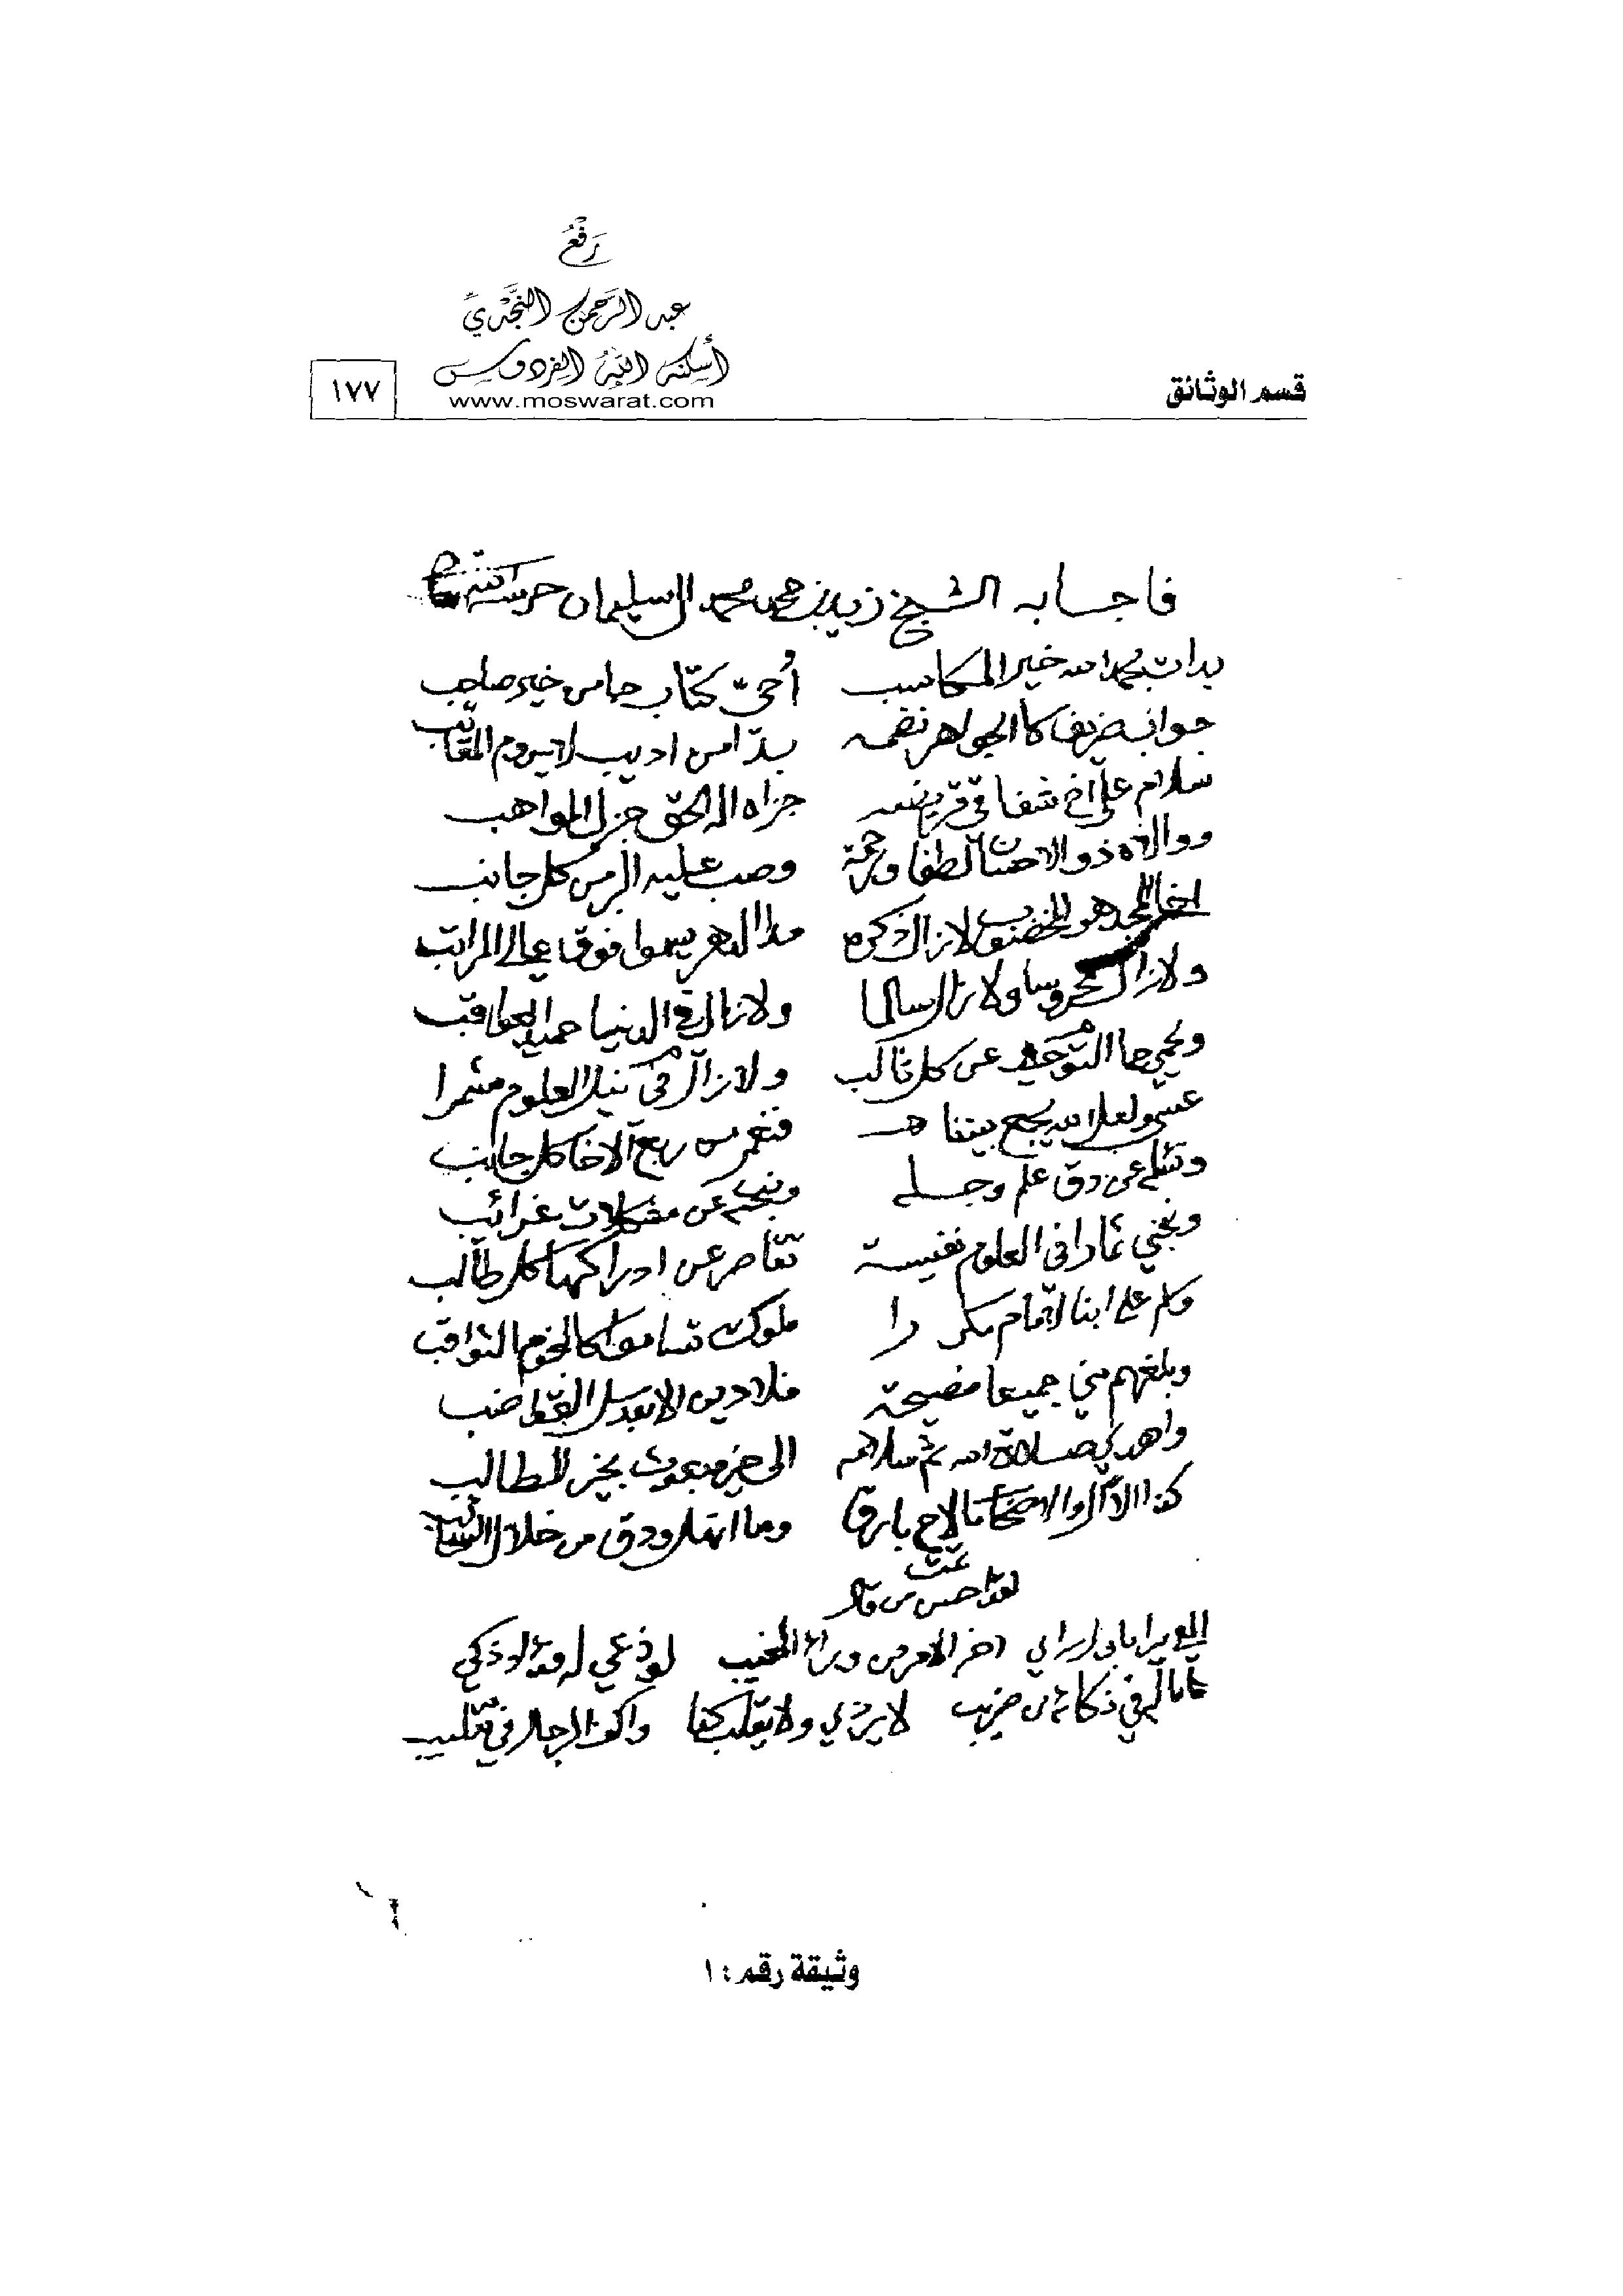 رَفْعُ
عبد الرحمن النَّجْدِيِّ
أسكنه الله الفردوس
www.moswarat.com
قسم الوثائق
١٧٧
فاجابه الشيخ زيد بن محمد آل سليمان حرسه الله
بدات بحمد الله خير المكاسب أحيّ كتاب جا من خير صاحب
جواب ضريف كالجواهر نضمه بدا من اديب لا يروم
سلام على اخ شفا في قريضه جزاه اله الحق جزل المواهب
ووالاه ذو الاحسان لطفا ورحمة وصب عليه البر من كل جانب
اخا المجد لا زال ذكره مدا الدهر يسموا فوق عالي المراتب
ولا زال محروسا ولا زال سالما ولا زال في الدنيا حميد العواقب
ويحمي حما التوحيد عن كل ثالب ولا زال في نيل العلوم مشمرا
عسى ولعل الله يجمع بيننا فنغمر من ربع الاخا كل جانب
عن دق علم وجله ونبحث عن مشكلات غرائب
ونجني ثمارا في العلوم نفيسة تقاصر عن ادراكها كل طالب
وسلم على ابنا الامام مكررا ملوك تساموا كالنجوم الثواقب
وبلغهم مني جميعا نصيحة فلا دين الا بعد سل القواضب
واهدي صلاة الله ثم سلامه الى خير مبعوث بخير المطالب
كذا الال والاصحاب ما لاح بارق وما انهل ودق من خلال السحائب
تمت
لقد احسن من قال
اخر الامر من وراء المغيب لوذعي له فؤاد ذكي
ما له في ذكائه من ضريب لا يروي ولا يقلب كفا واكف الرجال في تقليب
وثيقة رقم: ١